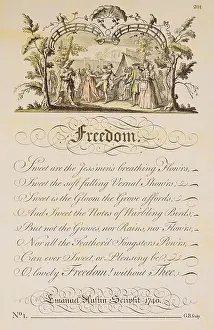 201
Freedom.
Sweet are the Jess'mens breathing Flow'rs,
Sweet the soft falling Vernal Show'rs;
Sweet is the Gloom the Grove affords,
And Sweet the Notes of Warbling Birds,
But not the Groves, nor Rains, nor Flow'rs,
Nor all the Feather'd Songsters Pow'rs,
Can ever Sweet, or Pleasing be,
O lovely Freedom! without Thee.
Emanuel Austin Scripsit 1740.
No. 1.
G.B. Sculp